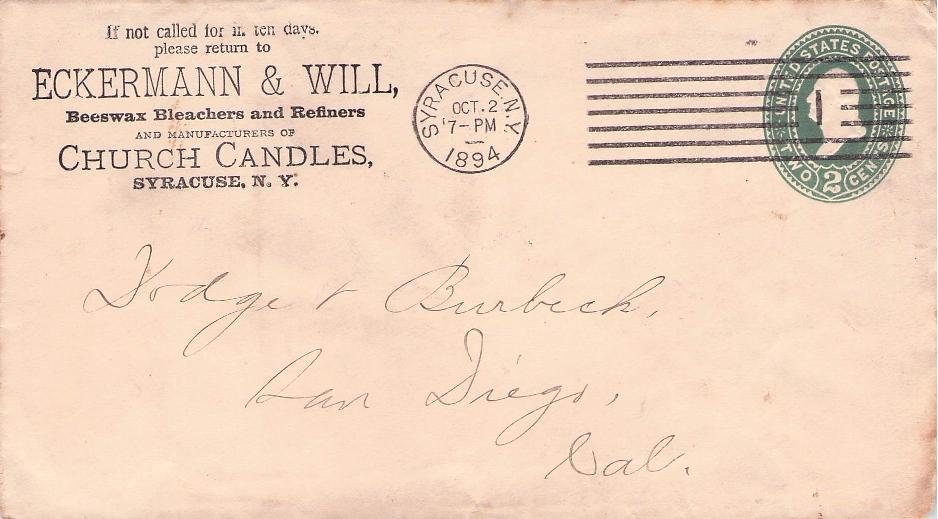 If not called for in ten days.
please return to
ECKERMANN & WILL,
Beeswax Bleachers and Refiners
AND MANUFACTURERS OF
CHURCH CANDLES,
SYRACUSE, N. Y.
SYRACUSE.N.Y.
OCT. 2
7-PM
1894
1
UNITED STATES POSTAGE
TWO 2 CENTS
Dodge & Burbeck,
San Diego,
Cal.